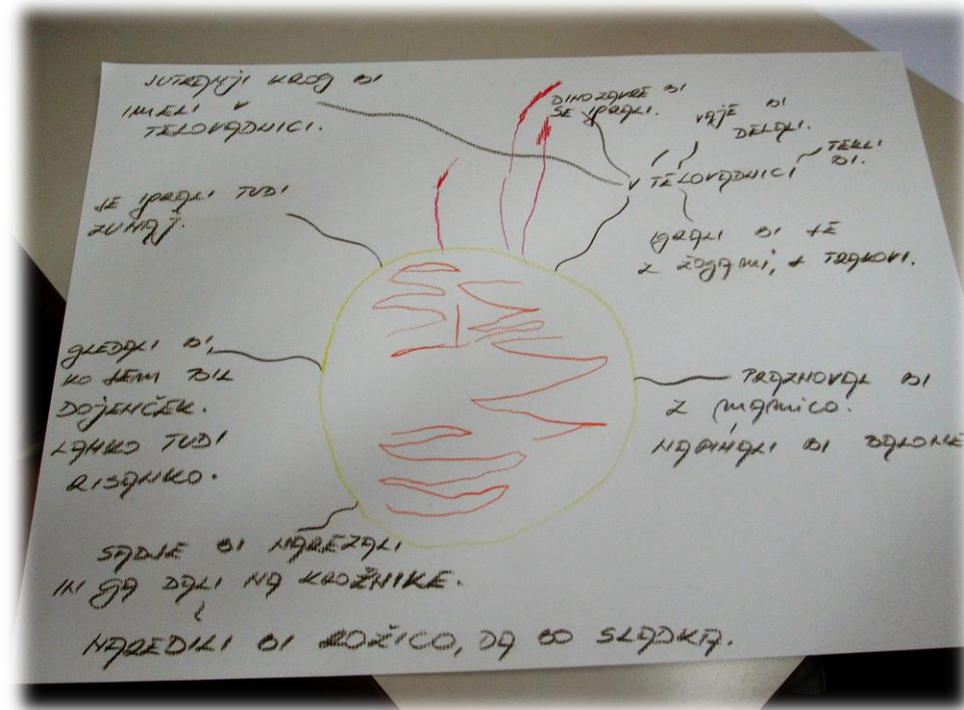 JUTRANJI KROG BI
IMELI V
TELOVADNICI.
DINOZAVRE BI
SE IGRALI.
VAJE BI
DELALI.
TEKLI
BI.
V TELOVADNICI
IGRALI BI SE
Z ŽOGAMI, S TRAKOVI.
SE IGRALI TUDI
ZUNAJ.
GLEDALI BI,
KO SEM BIL
DOJENČEK.
LAHKO TUDI
RISANKO.
PRAZNOVAL BI
Z MAMICO.
NAPIHALI BI BALONE
SADJE BI NAREZALI
IN GA DALI NA KROŽNIKE.
NAREDILI BI ROŽICO, DA BO SLADKA.